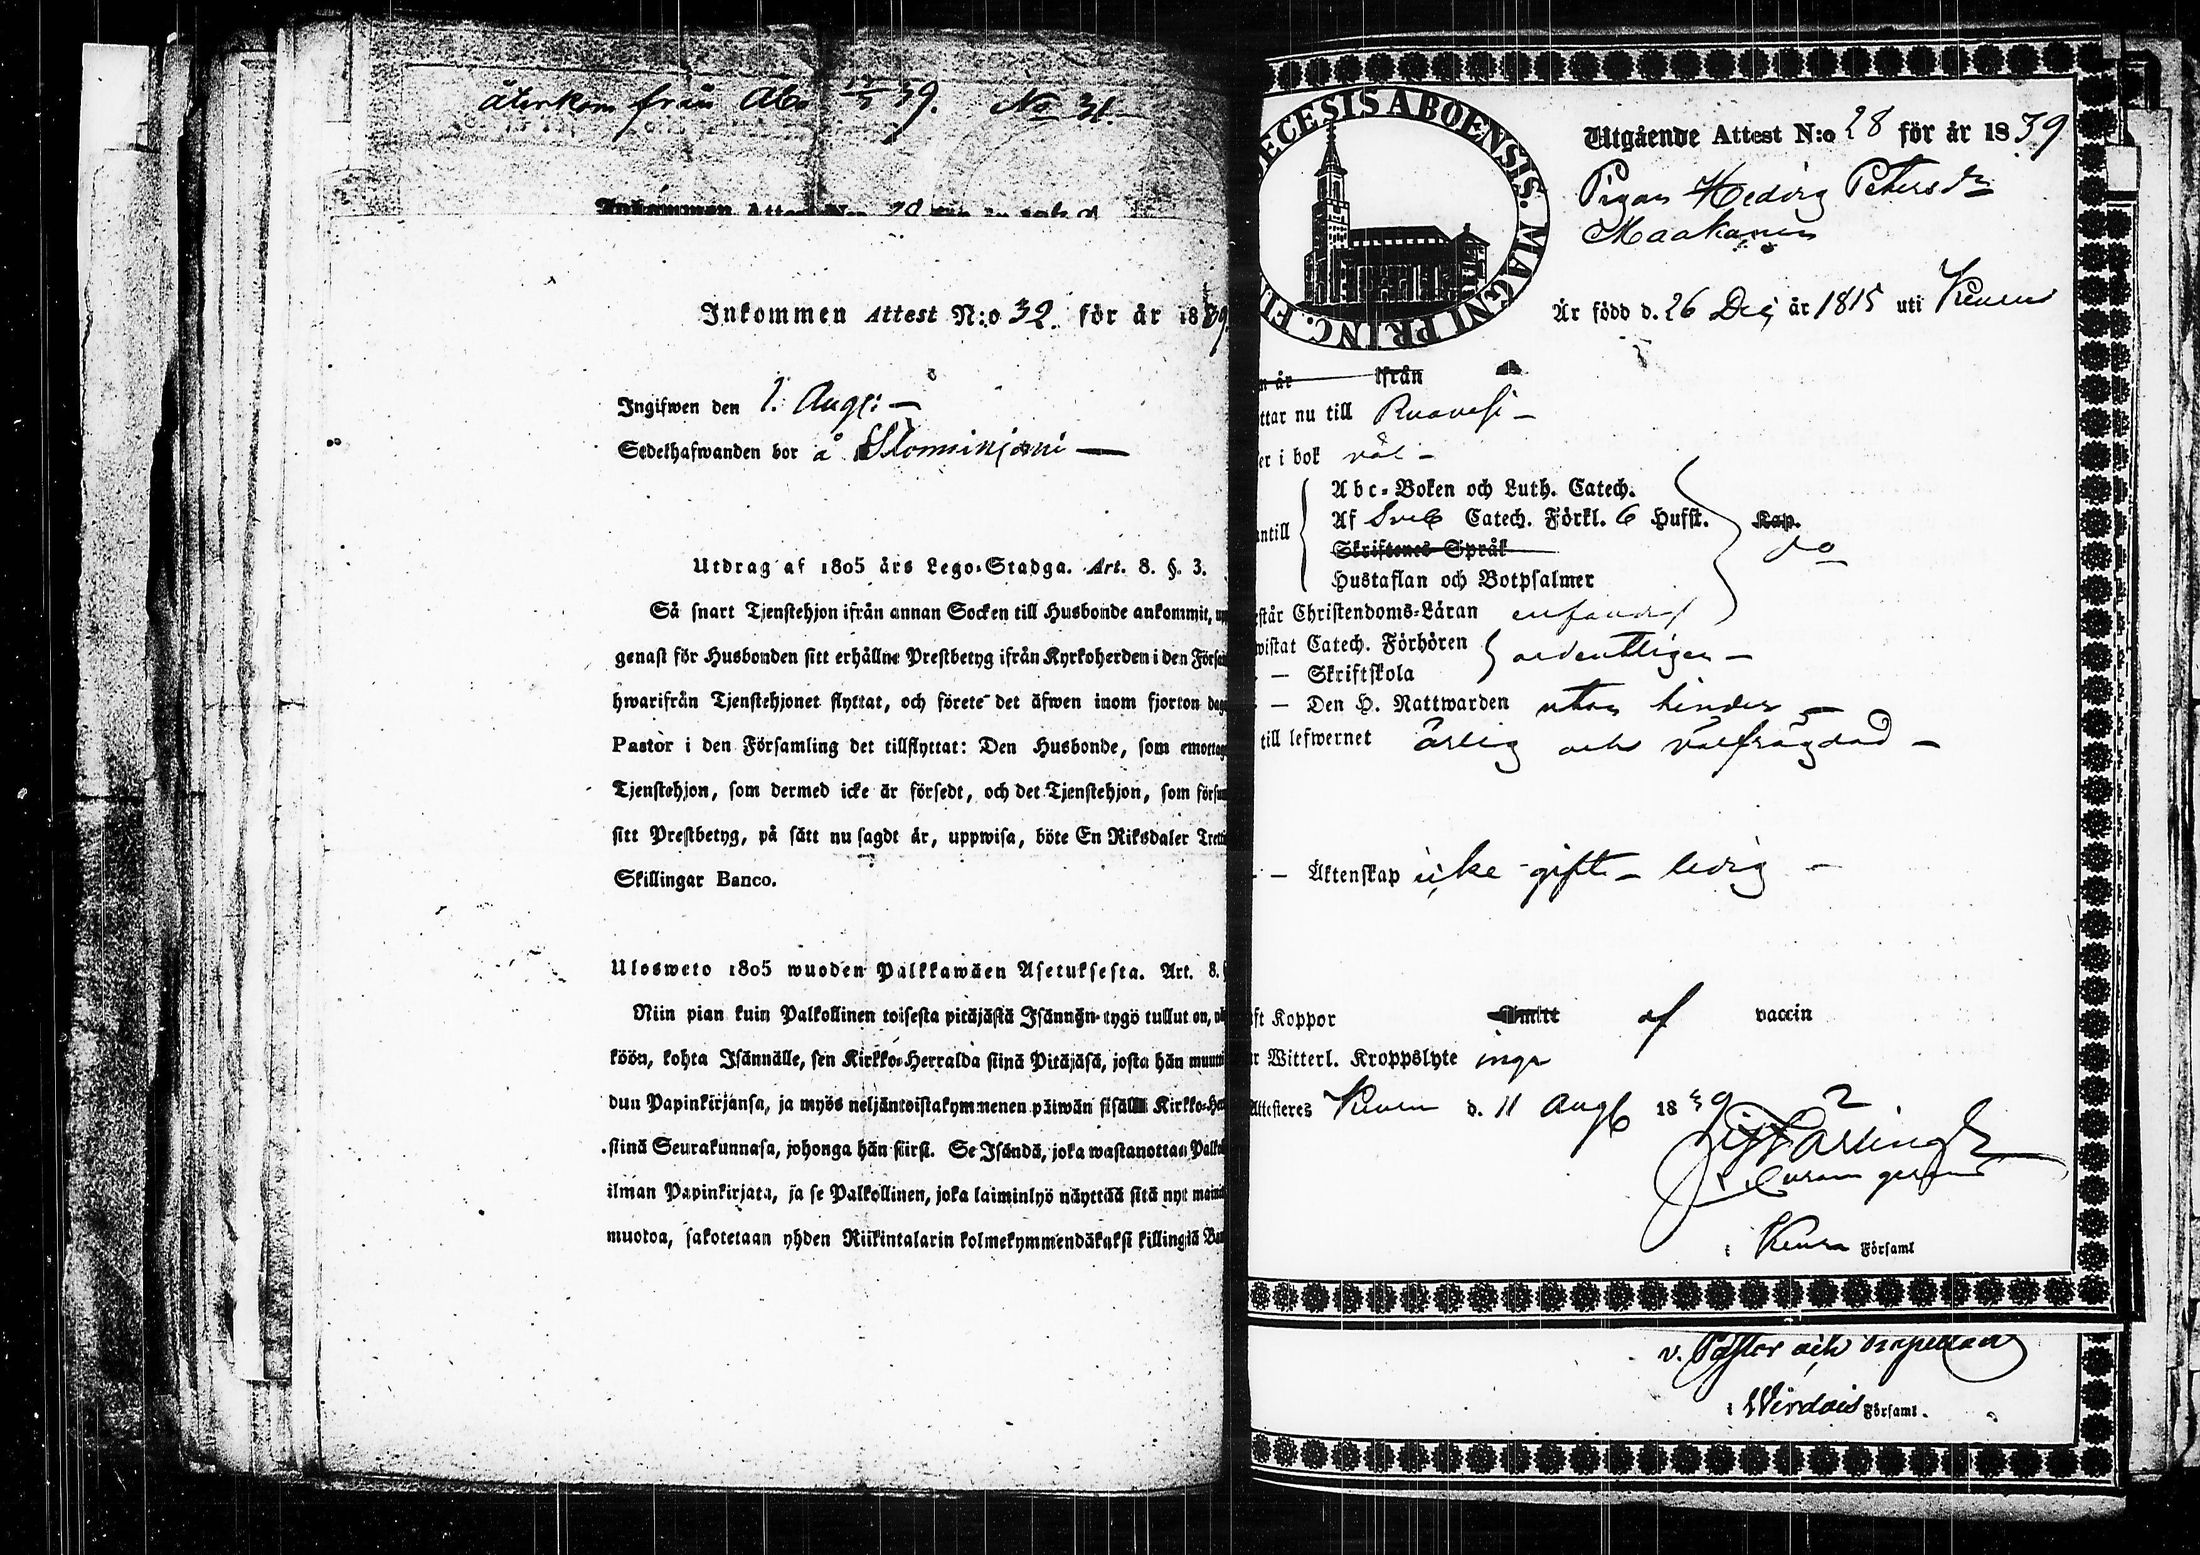 återkom från Åbo 39. No 31.
Inkommen Attest N:o 32 för år 1839
Ingifwen den 1. Aug:
Sedelhafwanden bor å
Utdrag af 1805 års Lego-Stadga. Art. 8. §. 3.
Så snart Tjenstehjon ifrån annan Socken till Husbonde ankommit,
genast för Husbonden sitt erhållne Prestbetyg ifrån Kyrkoherden i den
hwarifrån Tjenstehjonet flyttat, och förete det äfwen inom fjorton
Pastor i den Församling det tillflyttat: Den Husbonde, som
Tjenstehjon, som dermed icke är försedt, och det Tjenstehjon, som
sitt Prestbetyg, på sätt nu sagdt är, uppwisa, böte En Riksdaler
Skillingar Banco.
Ulosweto 1805 wuoden Palkkawäen Asetuksesta. Art. 8.
Niin pian kuin Palkollinen toisesta pitäjästä Isännän tygö tullut on,
köön, kohta Isännälle, sen Kirkko-Herralda siinä Pitäjäsä, josta hän
dun Papinkirjansa, ja myös neljäntoistakymmenen päiwän sisällä Kirkko-
siinä Seurakunnasa, johonga hän siirst. Se Isändä, joka wastanottaa
ilman Papinkirjata, ja se Palkollinen, joka laiminlyö näyttää sitä nyt
muotoa, sakotetaan yhden Riikintalarin kolmekymmendäkaksi killingiä
ECESIS ABOENSIS. MAGNI PRINC. FI
Utgående Attest N:o 28 för år 1839
Pigan Hedvig Petersdr
Maakanen
Är född d. 26 Dec; år 1815 uti Keuru
n år ifrån
ttar nu till Ruovesi
er i bok väl
Abc-Boken och Luth. Catech.
Af Sveb Catech. Förkl. 6 Hufst. Kap.
antill do
Skriftenes Språk
Hustaflan och Botpsalmer
står Christendoms-Läran enfaldigt
wistat Catech. Förhören ordentligen
— Skriftskola
— Den H. Nattwarden utan hinder
till lefwernet ärlig och välfrägdad
— Äktenskap icke gift – ledig
ft Koppor af vaccin
r Witterl. Kroppslyte inga
Attesteres Keuru d. 11 Aug 1839
Curam gerens
i Keuru Församl
v. Pastor och
i Wirdois Församl.